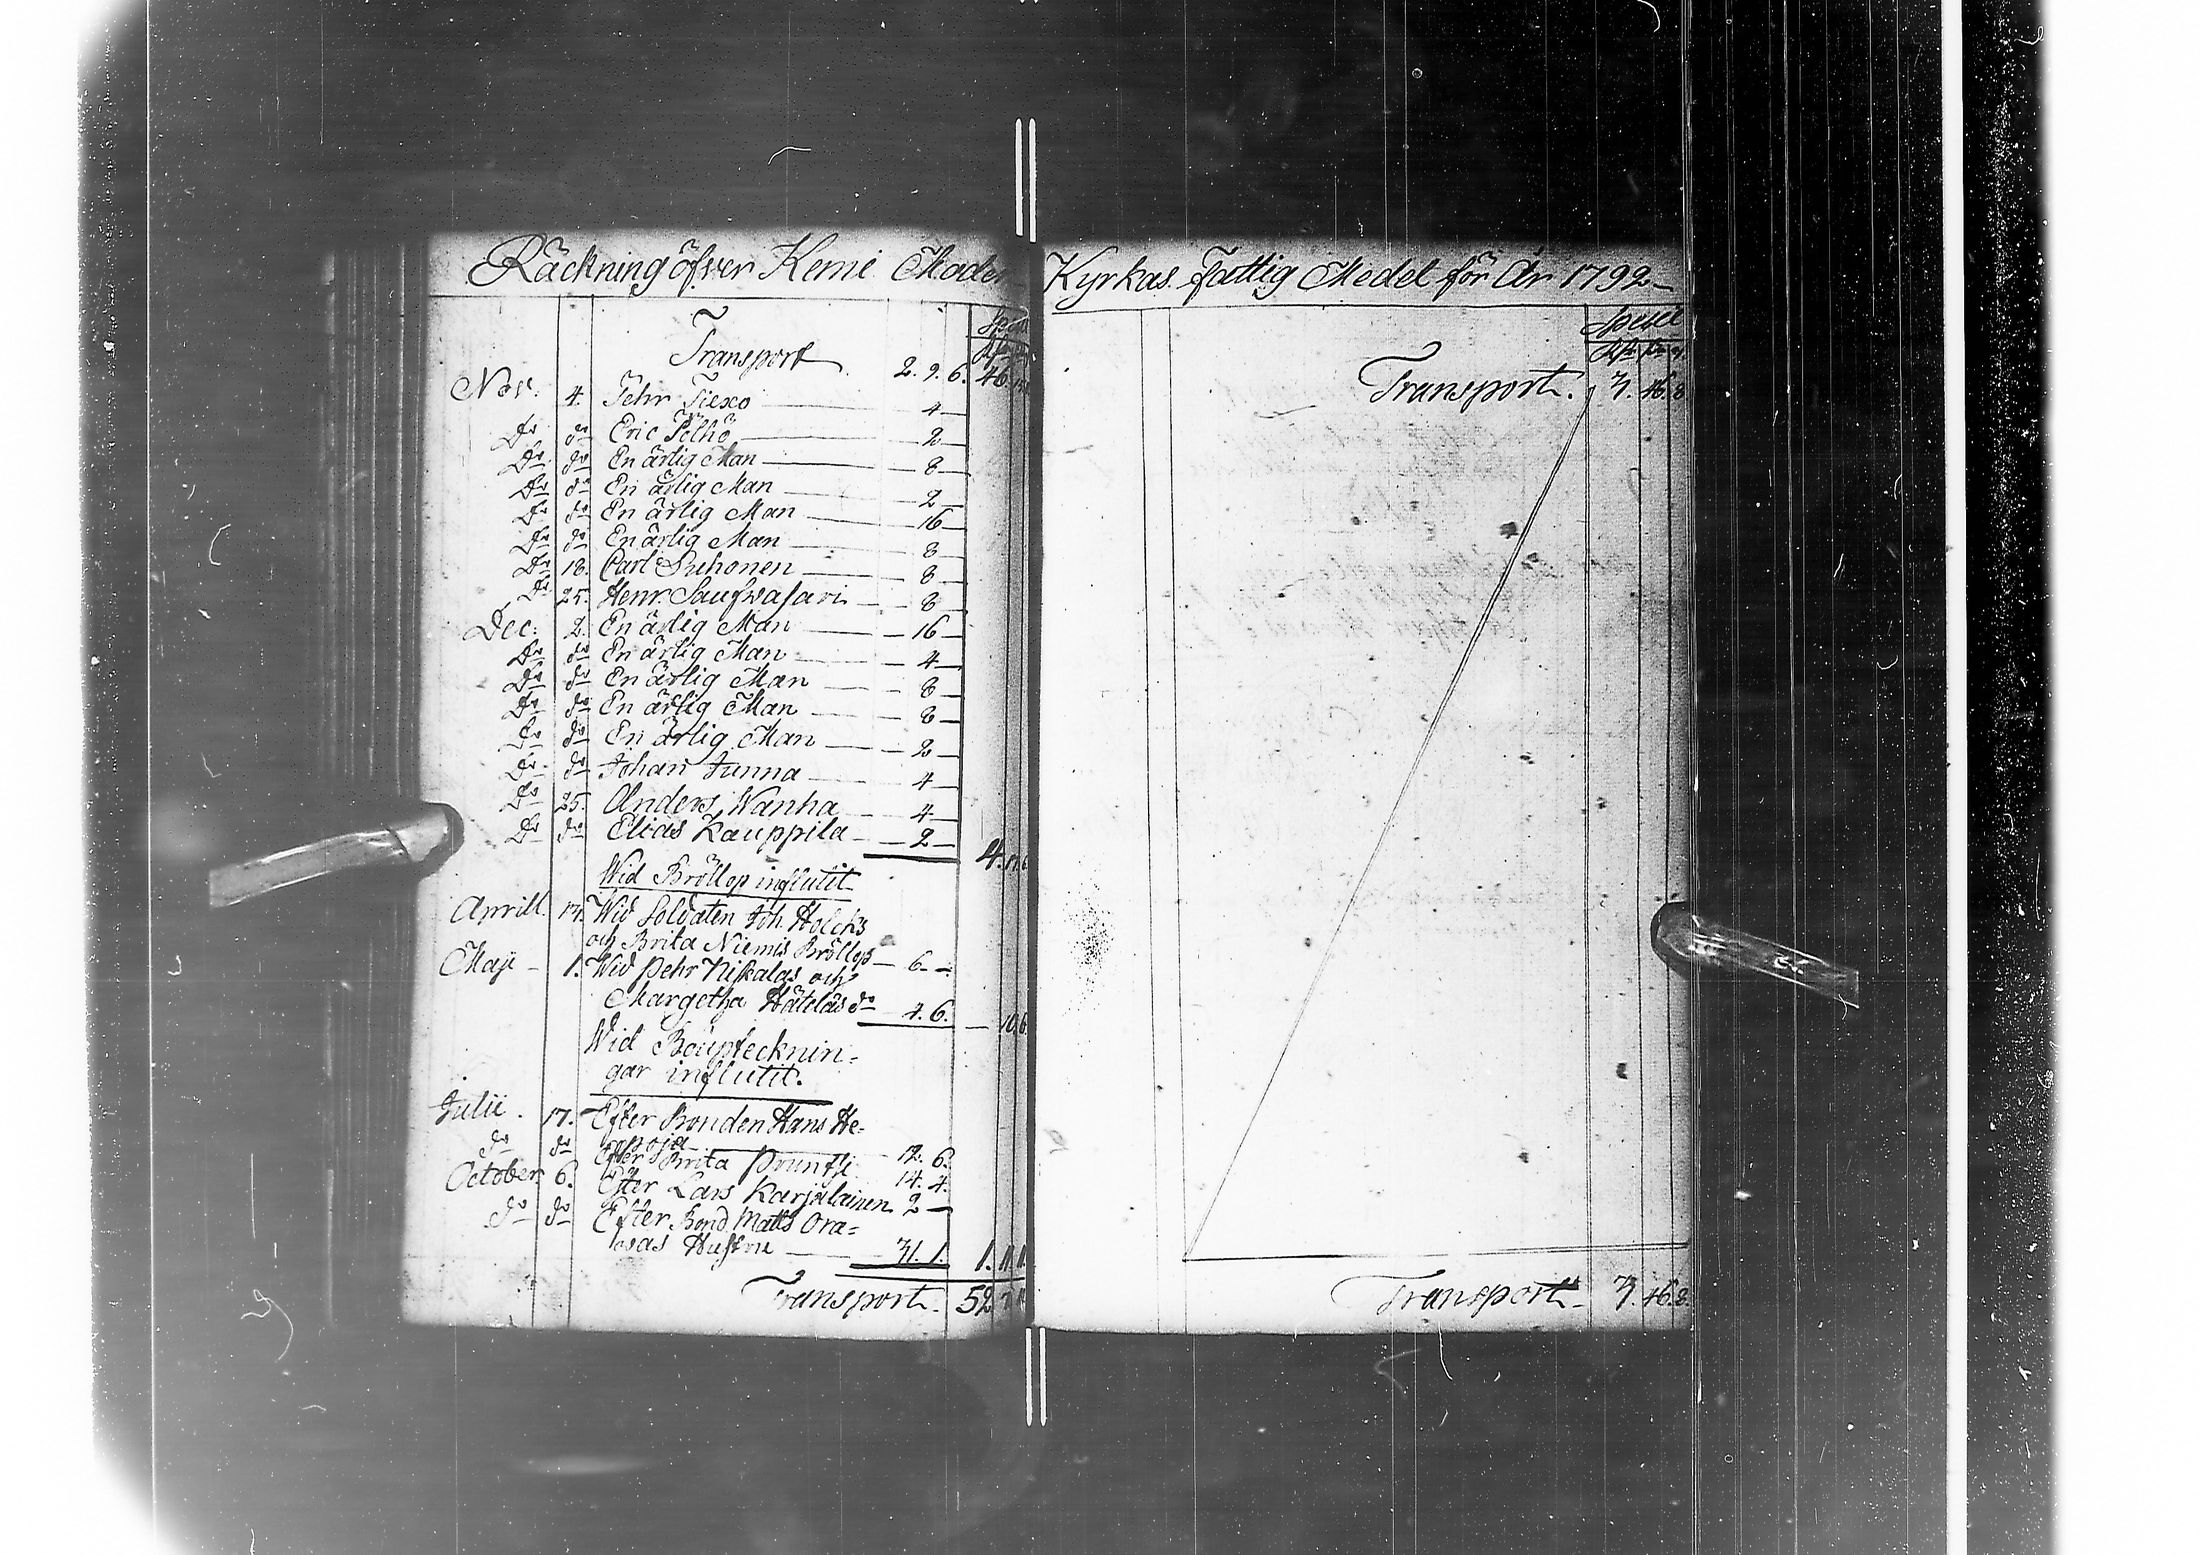 Räckning öfver Kemi Moder
Specie
Transport 2. 9. 6. 46.
Nov. 4. Pehr Tiexo 4
Do do Eric Pölhö 2
Do do En ärlig Man 8
Do do En ärlig Man 2
Do do En ärlig Man 16
Do do En ärlig Man 8
Do 18. Carl Suhonen 8
Do 25. Henr. Saufwasari 8
Dec: 2. En ärlig Man 16
Do do En ärlig Man 4
Do do En ärlig Man 8
Do do En ärlig Man 8
Do do En ärlig Man 2
Do do Johan Junna 4
Do 25. Anders Wanha 4
Do do Elias Kauppila 2
4.
Wid Bröllop influtit
Aprill. 17. Wid Soldaten Joh. Holcks
och Brita Niemis Bröllop 6.
Maji 1. Wid Pehr Niskalas och
Margetha Hätäläs do 4. 6. 10.6
Wid Bouptecknin=
gar influtit.
Julii. 17. Efter Bonden Hans He=
poja 12. 6.
do do Efter Brita Pruntsi 14. 4.
October 6. Efter Lars Karjalainen 2
do do Efter Bond. Matts Ora=
was Hustru 31. 1. 1. 11. 1.
Transport. 52
Kyrkas Fattig Medel för År 1792
Specie
Transport. 7. 46. 8
Transport 7. 46. 8.